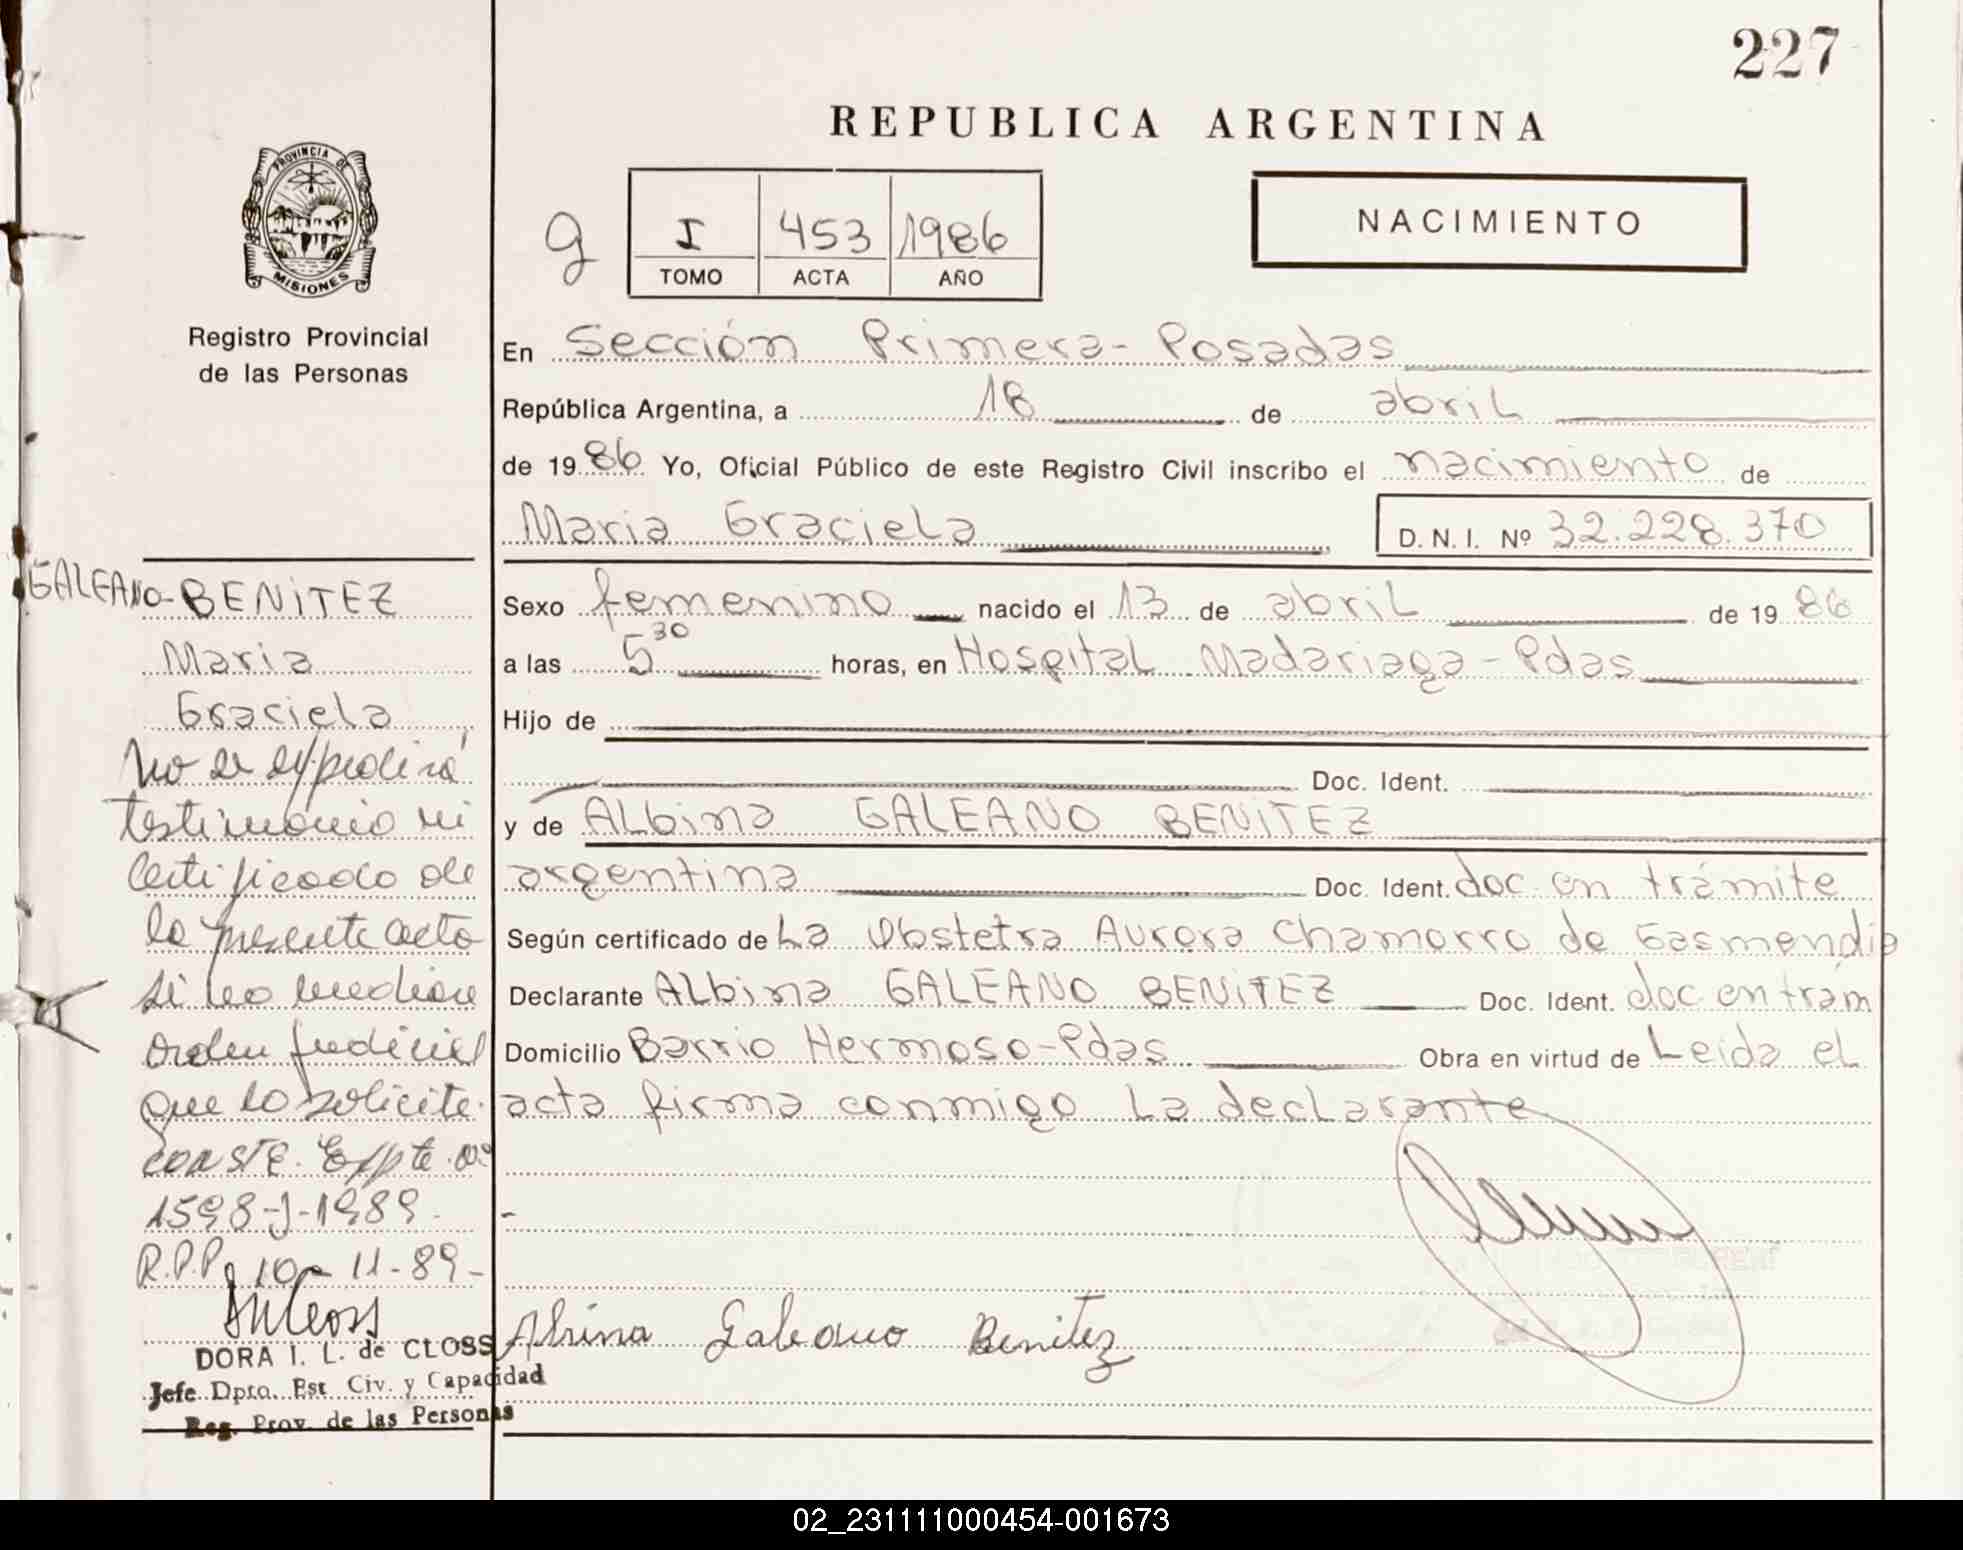 227
REPUBLICA ARGENTINA
PROVINCIA DE
MISIONES
Registro Provincial
de las Personas
g
I 453 1986
TOMO ACTA AÑO
NACIMIENTO
En Sección Primera - Posadas
República Argentina, a 18 de abril
de 1986 Yo, Oficial Público de este Registro Civil inscribo el nacimiento de
Maria Graciela D.N.I. Nº 32.228.370
Sexo femenino nacido el 13 de abril de 1986
a las 5 30 horas, en Hospital Madariaga - Pdas
Hijo de
Doc. Ident.
y de Albina GALEANO BENITEZ
argentina Doc. Ident. doc. en trámite
Según certificado de La Obstetra Aurora Chamorro de Gasmendia
Declarante Albina GALEANO BENITEZ Doc. Ident. doc en trám
Domicilio Barrio Hermoso - Pdas Obra en virtud de Leida el
acta firma conmigo la declarante
Albina Galeano Benitez
GALEANO - BENITEZ
Maria
Graciela
No se expedirá
testimonio ni
certificado de
la presente acta
si no mediare
orden judicial
que lo solicite.
conste. Expte. nº
1598-J-1989.
R.P.P. 10-11-89-
DORA I. L. de CLOSS
Jefe Dpto. Est Civ. y Capacidad
Reg. Prov. de las Personas
02_231111000454-001673